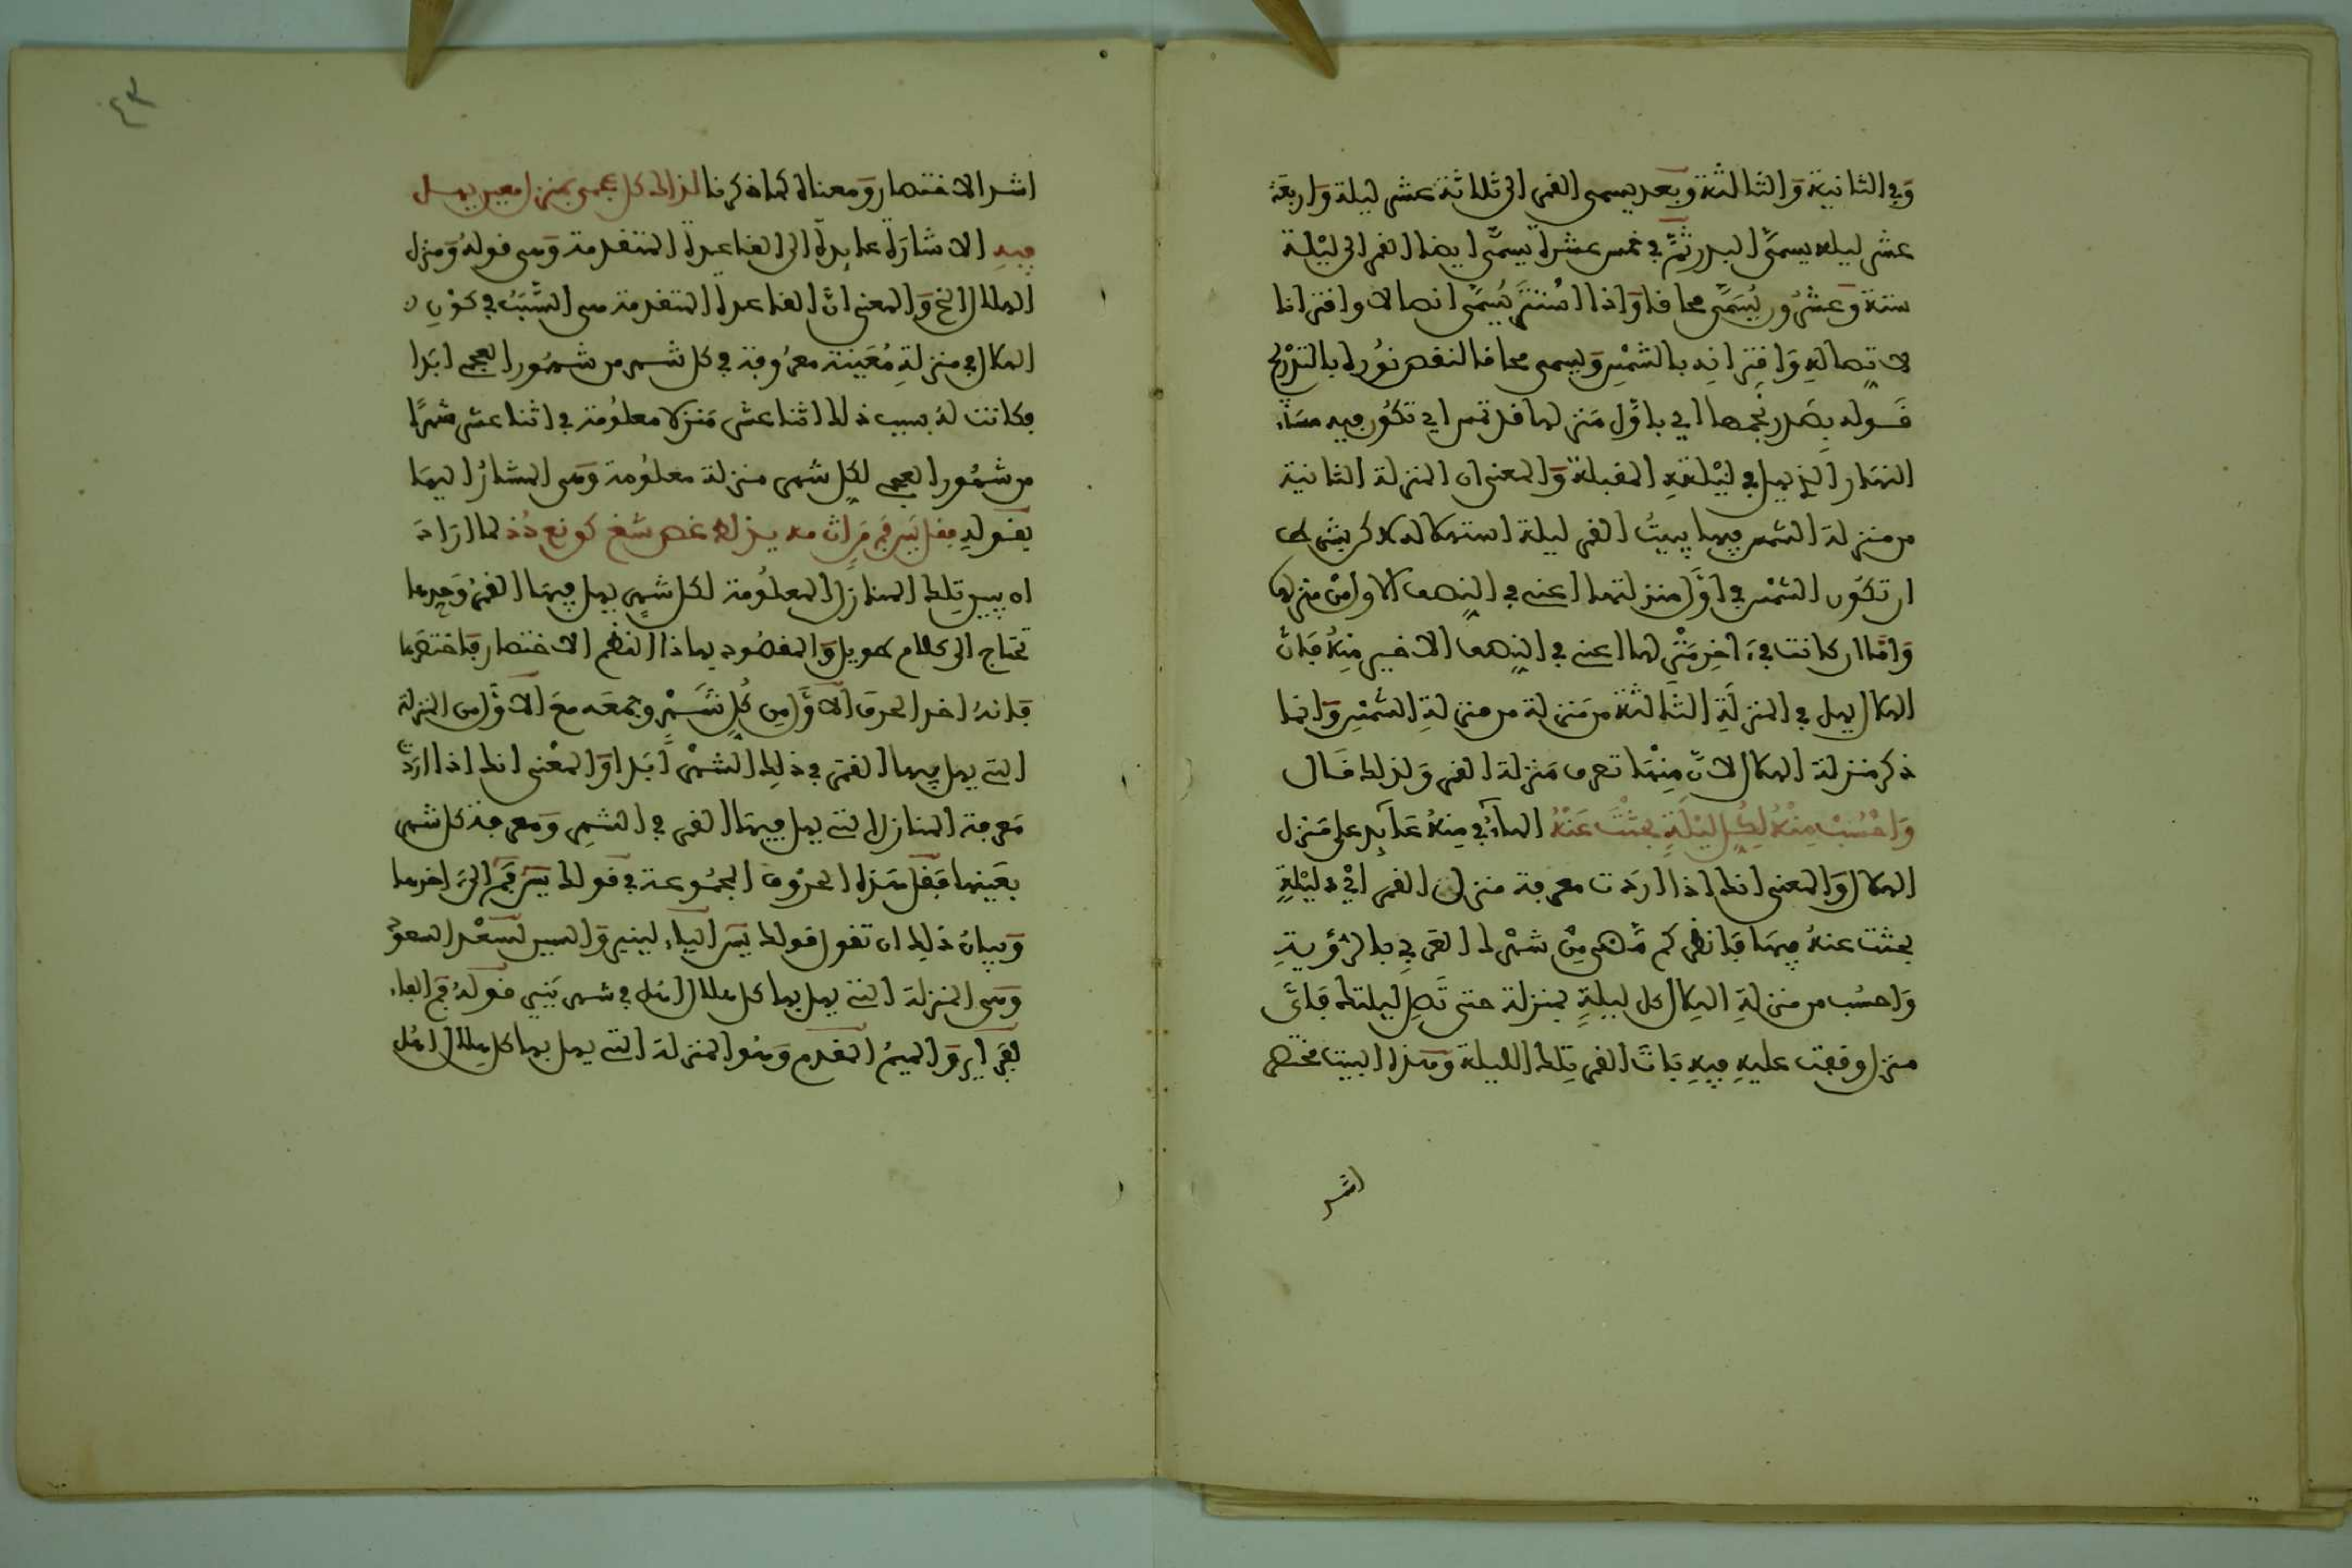 وفي الثانية والثالثة وبعد يسمى القمر الى ثلاثة عشر ليلة واربعة
عشر ليلة يسمى البدر ثم في خمس عشرة يسمى ايضا القمر الى ليلة
ستة وعشرون يسمى محاقا واذا استتر يسمى اتصالا واقترانا
لاتصاله واقترانه بالشمس ويسمى محاقا لنقص نوره بالتدريج
قوله بصدر نجمها اي باول منزلها قد تمس اي تكون فيه مساء
النهار الذي يهل في ليلته المقبلة والمعنى ان المنزلة الثانية
من منزلة الشمس فيها يبيت القمر ليلة استهلاله لاكن بشرط
ان تكون الشمس في اول منزلتها اعني في النصف الاول من منزلها
واما ان كانت في ءاخر منزلها اعني في النصف الاخير منه فان
الهلال يهل في المنزلة الثالثة من منزلة من منزلة الشمس وانما
ذكر منزلة الهلال لان منها تعرف منزلة القمر ولذلك قال
واحسب منه لكل ليلة بحثت عنه الهاء في منه عائد على منزل
الهلال والمعنى انك اذا اردت معرفة منزلة القمر اي في ليلة
بحثت عنه فيها فانظر كم مضى من شهرك القمري بالرؤية
واحسب من منزلة الهلال كل ليلة بمنزلة حتى تصل ليلتك فاي
منزل وقفت عليه فيه بات القمر تلك الليلة وهذا البيت مختصر
اشد
٤٣
اشد الاختصار ومعناه كما ذكرنا لذاك كل عجمي بمنزل معين يهل
فيه الاشارة عايدة الى القاعدة المتقدمة وهي قوله ومنزل
الهلال الخ والمعنى ان القاعدة المتقدمة هي السبب في كون
الهلال في منزلة معينة معروفة في كل شهر من شهور العجم ابدا
فكانت له بسبب ذلك اثنا عشر منزلا معلومة في اثنا عشر شهرا
من شهور العجم لكل شهر منزلة معلومة وهي المشار اليها
بقوله فقل يسر فم مرات مه يزله غص شغ كونع دذ لما اراد
ان يبين تلك المنازل المعلومة لكل شهر يهل فيها القمر وحدها
تحتاج الى كلام طويل والمقصود بهاذا النظم الاختصار فاختصرها
فانه اخذ الحرف الاول من كل شهر وجمعه مع الاول من المنزلة
التي يهل فيها القمر في ذلك الشهر ابدا والمعنى انك اذا اردت
معرفة المنازل التي يهل فيها القمر في الشهر ومعرفة كل شهر
بعينها فقل هذه الحروف المجموعة في قولك يسر فم الى ءاخرها
وبيان ذلك ان تقول قولك يسر الياء لينير والسين لسعد السعود
وهي المنزلة التي يهل بها كل هلال اهل في شهر ينير قوله فم الفاء
لفبراير والميم المقدم وهو المنزلة التي يهل بها كل هلال اهل